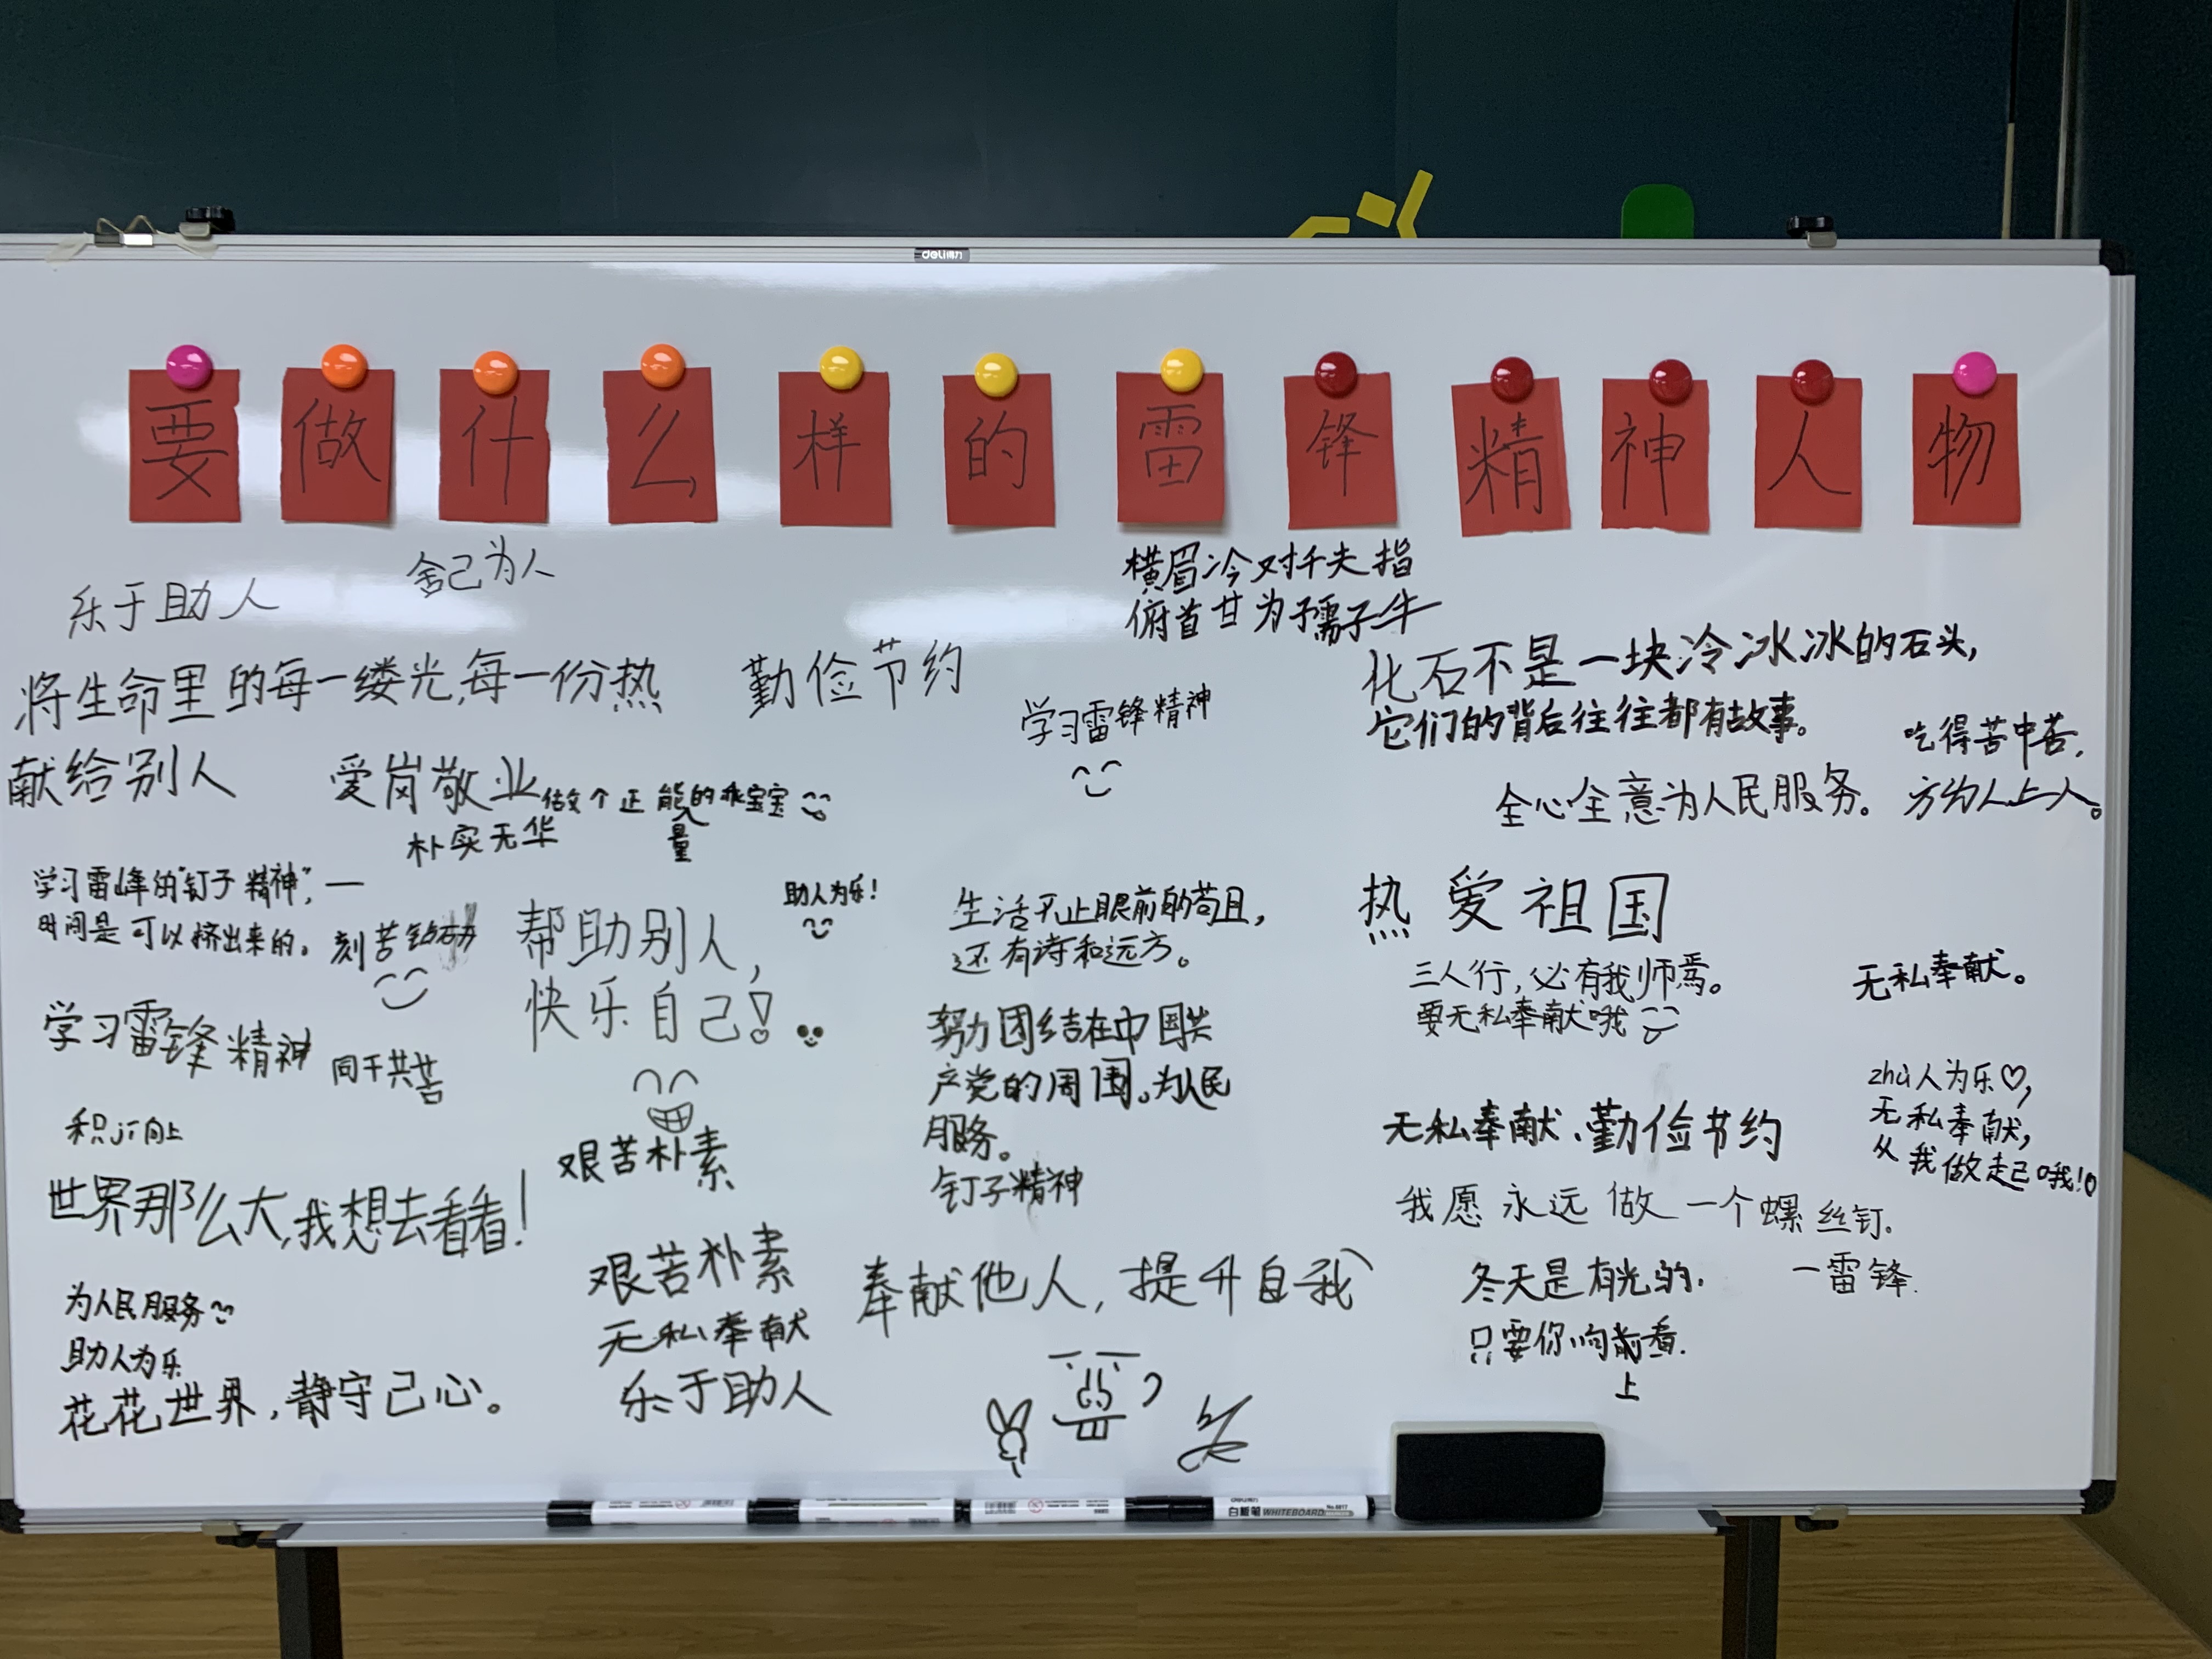 deli得力
要做什么样的雷锋精神人物
乐于助人
舍己为人
横眉冷对千夫指
俯首甘为孺子牛
将生命里的每一缕光,每一份热
献给别人
勤俭节约
学习雷锋精神
化石不是一块冷冰冰的石头,
它们的背后往往都有故事。
吃得苦中苦,
方为人上人。
爱岗敬业
做个正能量的乖宝宝
朴实无华
全心全意为人民服务。
学习雷峰的"钉子精神",一
时间是可以挤出来的。
刻苦钻研
帮助别人,
快乐自己!
助人为乐!
生活不止眼前的苟且,
还有诗和远方。
热爱祖国
三人行,必有我师焉。
要无私奉献哦
无私奉献。
学习雷锋精神
同干共苦
努力团结在中国共
产党的周围。为人民
服务。
钉子精神
zhù人为乐♡,
无私奉献,
从我做起哦!
积jí向上
艰苦朴素
无私奉献、勤俭节约
世界那么大,我想去看看!
我愿永远做一个螺丝钉.
一雷锋.
艰苦朴素
无私奉献
乐于助人
奉献他人,提升自我
冬天是有光的.
只要你向前看.
上
为人民服务
助人为乐
花花世界,静守己心。
deli得力
白板笔 WHITEBOARD